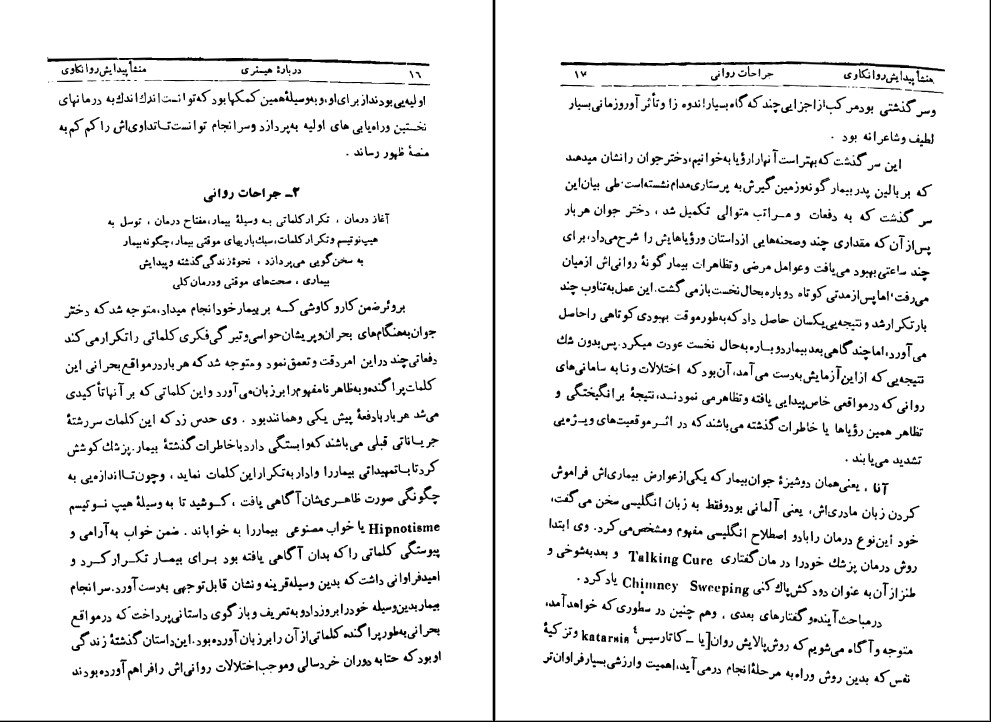 ۱٦ دربارهٔ هیستری منشأ پیدایش روانکاوی
اولیه‌یی بودند از برای او، و به وسیلهٔ همین کمکها بود که توانست اندك اندك به درمانهای
نخستین و راه‌یابی های اولیه به پردازد و سرانجام توانست تا تداوی‌اش را کم کم به
منصهٔ ظهور رساند .
۲ـ جراحات روانی
آغاز درمان ، تکرار کلماتی به وسیلهٔ بیمار، مفتاح درمان ، توسل به
هیپ‌نوتیسم و تکرار کلمات، سبك‌باریهای موقتی بیمار، چگونه بیمار
به سخن‌گویی می‌پردازد ، نحوهٔ زندگی گذشته و پیدایش
بیماری ، صحت‌های موقتی و درمان کلی
بروئر ضمن کار و کاوشی کـه بر بیمار خود انجام میداد، متوجه شد که دختر
جوان به‌هنگام‌های بحران و پریشان حواسی و تیرگی فکری کلماتی را تکرار می کند
دفعاتی چند در این امر دقت و تعمق نمود و متوجه شد که هر بار در مواقع بحرانی این
کلمات پراگنده و به ظاهر نامفهوم را بر زبان می‌آورد و این کلماتی که بر آنها تأکیدی
می‌شد هر بار با دفعهٔ پیش یکی و همانند بود . وی حدس زد که این کلمات سررشتهٔ
جریاناتی قبلی می‌باشند که وابستگی دارد با خاطرات گذشتهٔ بیمار. پزشك کوشش
کرد تا با تمهیداتی بیمار را وادار به تکرار این کلمات نماید ، و چون تا اندازه‌یی به
چگونگی صورت ظاهری‌شان آگاهی یافت ، کـوشید تا به وسیلهٔ هیپ نـوتیسم
Hipnotisme یا خواب مصنوعی بیمار را به خواباند . ضمن خواب به آرامی و
پیوستگی کلماتی را که بدان آگاهی یافته بود بـرای بیمـار تکـرار کـرد و
امید فراوانی داشت که بدین وسیله قرینه و نشان قابل توجهی به‌دست آورد. سرانجام
بیمار بدین وسیله خود را بروز داد و به تعریف و بازگوی داستانی پرداخت که در مواقع
بحرانی به‌طور پراگنده کلماتی از آن را بر زبان آورده بود. این داستان گذشتهٔ زندگی
او بود که حتا به دوران خردسالی و موجب اختلالات روانی‌اش را فراهم آورده بودند
منشأ پیدایش روانکاوی جراحات روانی ۱۷
و سرگذشتی بود مرکب از اجزایی چند که گاه بسیار اندوه زا و تأثرآور و زمانی بسیار
لطیف و شاعرانه بود .
این سرگذشت که بهتر است آنها را رؤیا به خوانیم، دختر جوان را نشان میدهد
که بر بالین پدر بیمار گونه و زمین گیرش به پرستاری مدام نشسته است. طی بیان این
سرگذشت که به دفعات و مـراتب متوالی تکمیل شد ، دختر جوان هر بار
پس از آن که مقداری چند و صحنه‌هایی از داستان و رؤیاهایش را شرح می‌داد، برای
چند ساعتی بهبود می‌یافت و عوامل مرضی و تظاهرات بیمارگونهٔ روانی‌اش از میان
می‌رفت، اما پس از مدتی کوتاه دوباره به حال نخست باز می گشت. این عمل به تناوب چند
بار تکرار شد و نتیجه‌یی یکسان حاصل داد که به‌طور موقت بهبودی کوتاهی را حاصل
می‌آورد، اما چند گاهی بعد بیمار دوباره به حال نخست عودت میکرد. پس بدون شك
نتیجه‌یی که از این آزمایش به دست می‌آمد، آن بود که اختلالات و نابه سامانی‌های
روانی که در مواقعی خاص پیدایی یافته و تظاهر می نمودند، نتیجهٔ برانگیختگی و
تظاهر همین رؤیاها یا خاطرات گذشته می‌باشند که در اثر موقعیت‌های ویژه‌یی
تشدید می‌یابند .
آنا ، یعنی همان دوشیزهٔ جوان بیمار که یکی از عوارض بیماری‌اش فراموش
کردن زبان مادری‌اش، یعنی آلمانی بود و فقط به زبان انگلیسی سخن می‌گفت،
خود این نوع درمان را با دو اصطلاح انگلیسی مفهوم و مشخص می‌کرد. وی ابتدا
روش درمان پزشك خود را درمان گفتاری Talking Cure و بعد به شوخی و
طنز از آن به عنوان دودکش پاك کنی Chimney Sweeping یاد کرد .
در مباحث آینده و گفتارهای بعدی ، و هم چنین در سطوری که خواهد آمد،
متوجه و آگاه می‌شویم که روش پالایش روان [یا ـ کاتارسیس٤ katarsis و تزکیهٔ
نفس که بدین روش و راه به مرحلهٔ انجام در می‌آید، اهمیت و ارزشی بسیار فراوان‌تر